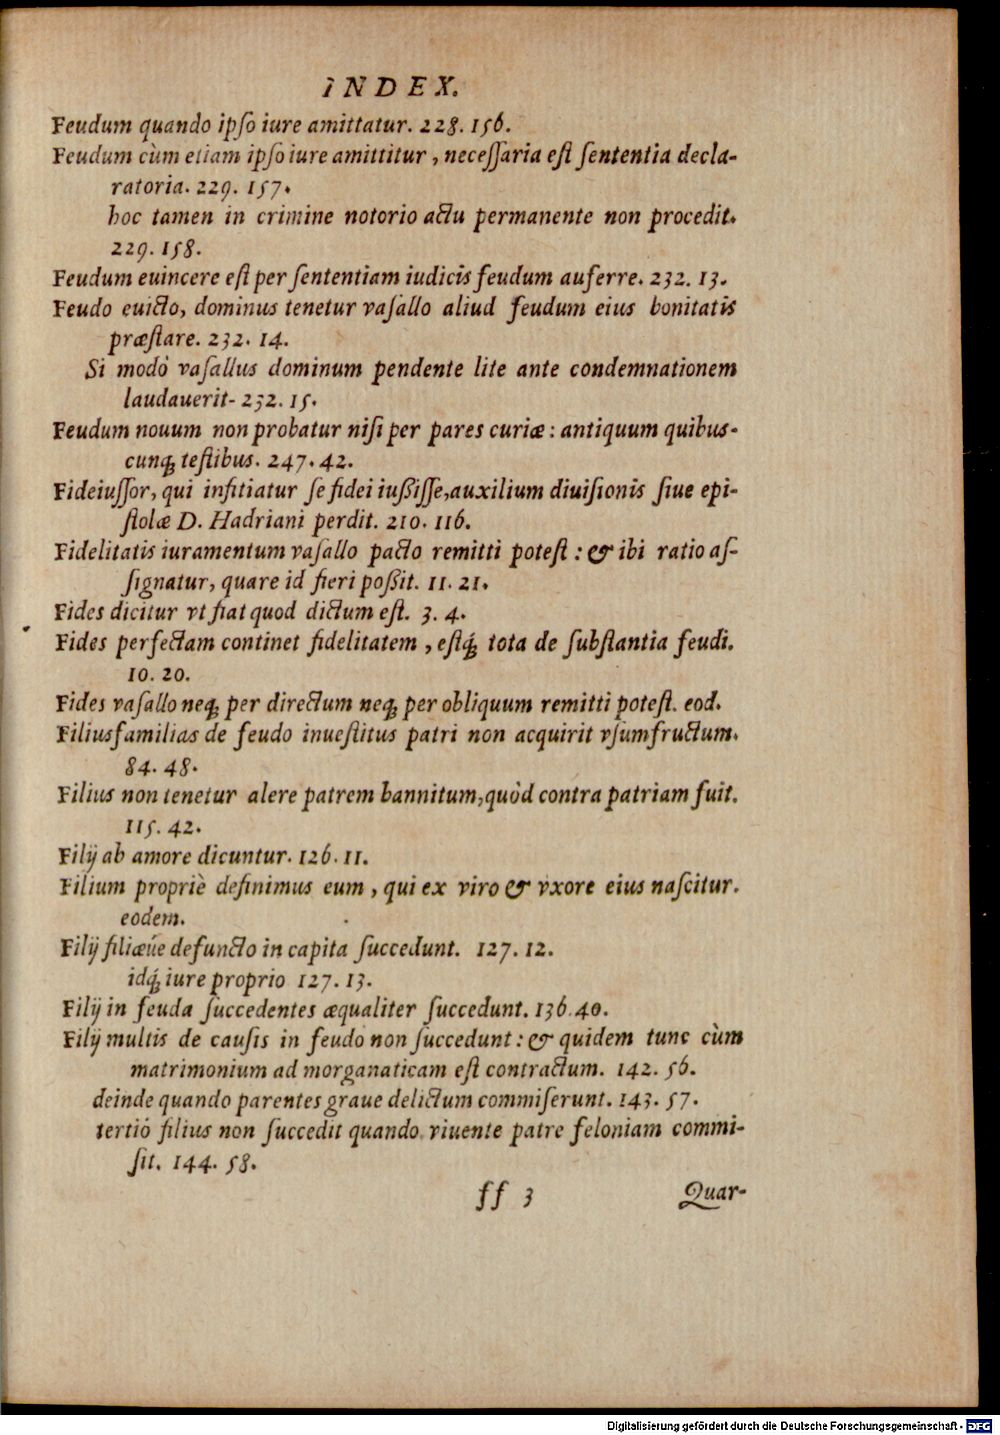 INDEX.
Feudum quando ipſo iure amittatur. 228. 156.
Feudum cùm etiam ipſo iure amittitur, neceſſaria eſt ſententia decla-
ratoria. 229. 157.
hoc tamen in crimine notorio actu permanente non procedit.
229. 158.
Feudum euincere eſt per ſententiam iudicis feudum auferre. 232. 13.
Feudo euicto, dominus tenetur vaſallo aliud feudum eius bonitatis
præſtare. 232. 14.
Si modò vaſallus dominum pendente lite ante condemnationem
laudauerit- 232. 15.
Feudum nouum non probatur niſi per pares curiæ: antiquum quibus-
cunq; teſtibus. 247. 42.
Fideiuſſor, qui infitiatur ſe fidei iußiſſe, auxilium diuiſionis ſiue epi-
ſtolæ D. Hadriani perdit. 210. 116.
Fidelitatis iuramentum vaſallo pacto remitti poteſt: & ibi ratio aſ-
ſignatur, quare id fieri poßit. 11. 21.
Fides dicitur vt fiat quod dictum eſt. 3. 4.
Fides perfectam continet fidelitatem, eſtq́; tota de ſubſtantia feudi.
10. 20.
Fides vaſallo neq; per directum neq; per obliquum remitti poteſt. eod.
Filiusfamilias de feudo inueſtitus patri non acquirit vſumfructum.
84. 48.
Filius non tenetur alere patrem bannitum, quòd contra patriam fuit.
115. 42.
Filij ab amore dicuntur. 126. 11.
Filium propriè definimus eum, qui ex viro & vxore eius naſcitur.
eodem.
Filij filiæúe defuncto in capita ſuccedunt. 127. 12.
idq́; iure proprio 127. 13.
Filij in feuda ſuccedentes æqualiter ſuccedunt. 136. 40.
Filij multis de cauſis in feudo non ſuccedunt: & quidem tunc cùm
matrimonium ad morganaticam eſt contractum. 142. 56.
deinde quando parentes graue delictum commiſerunt. 143. 57.
tertiò filius non ſuccedit quando viuente patre feloniam commi-
ſit. 144. 58.
ff 3 Quar-
Digitalisierung gefördert durch die Deutsche Forschungsgemeinschaft - DFG